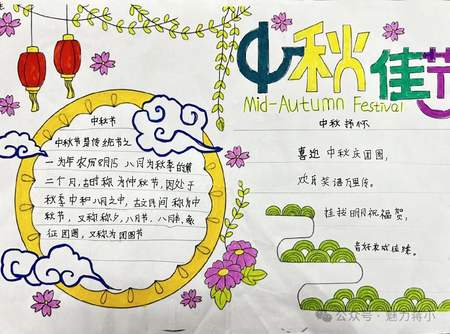 中秋佳节
Mid-Autumn Festival
中秋节
中秋节是传统节之
一为年农历8月15 八月为秋季的第
二个月,古时称为仲秋节,因处于
秋季中和八月之中,古文民间称为中
秋节,又称称夕,八月节,八月半,象
征团圆,又称为团圆节
中秋抒怀
喜迎中秋庆团圆,
欢声笑语万里传。
桂 明祝福贺,
喜好
公众号·魅力蒋小